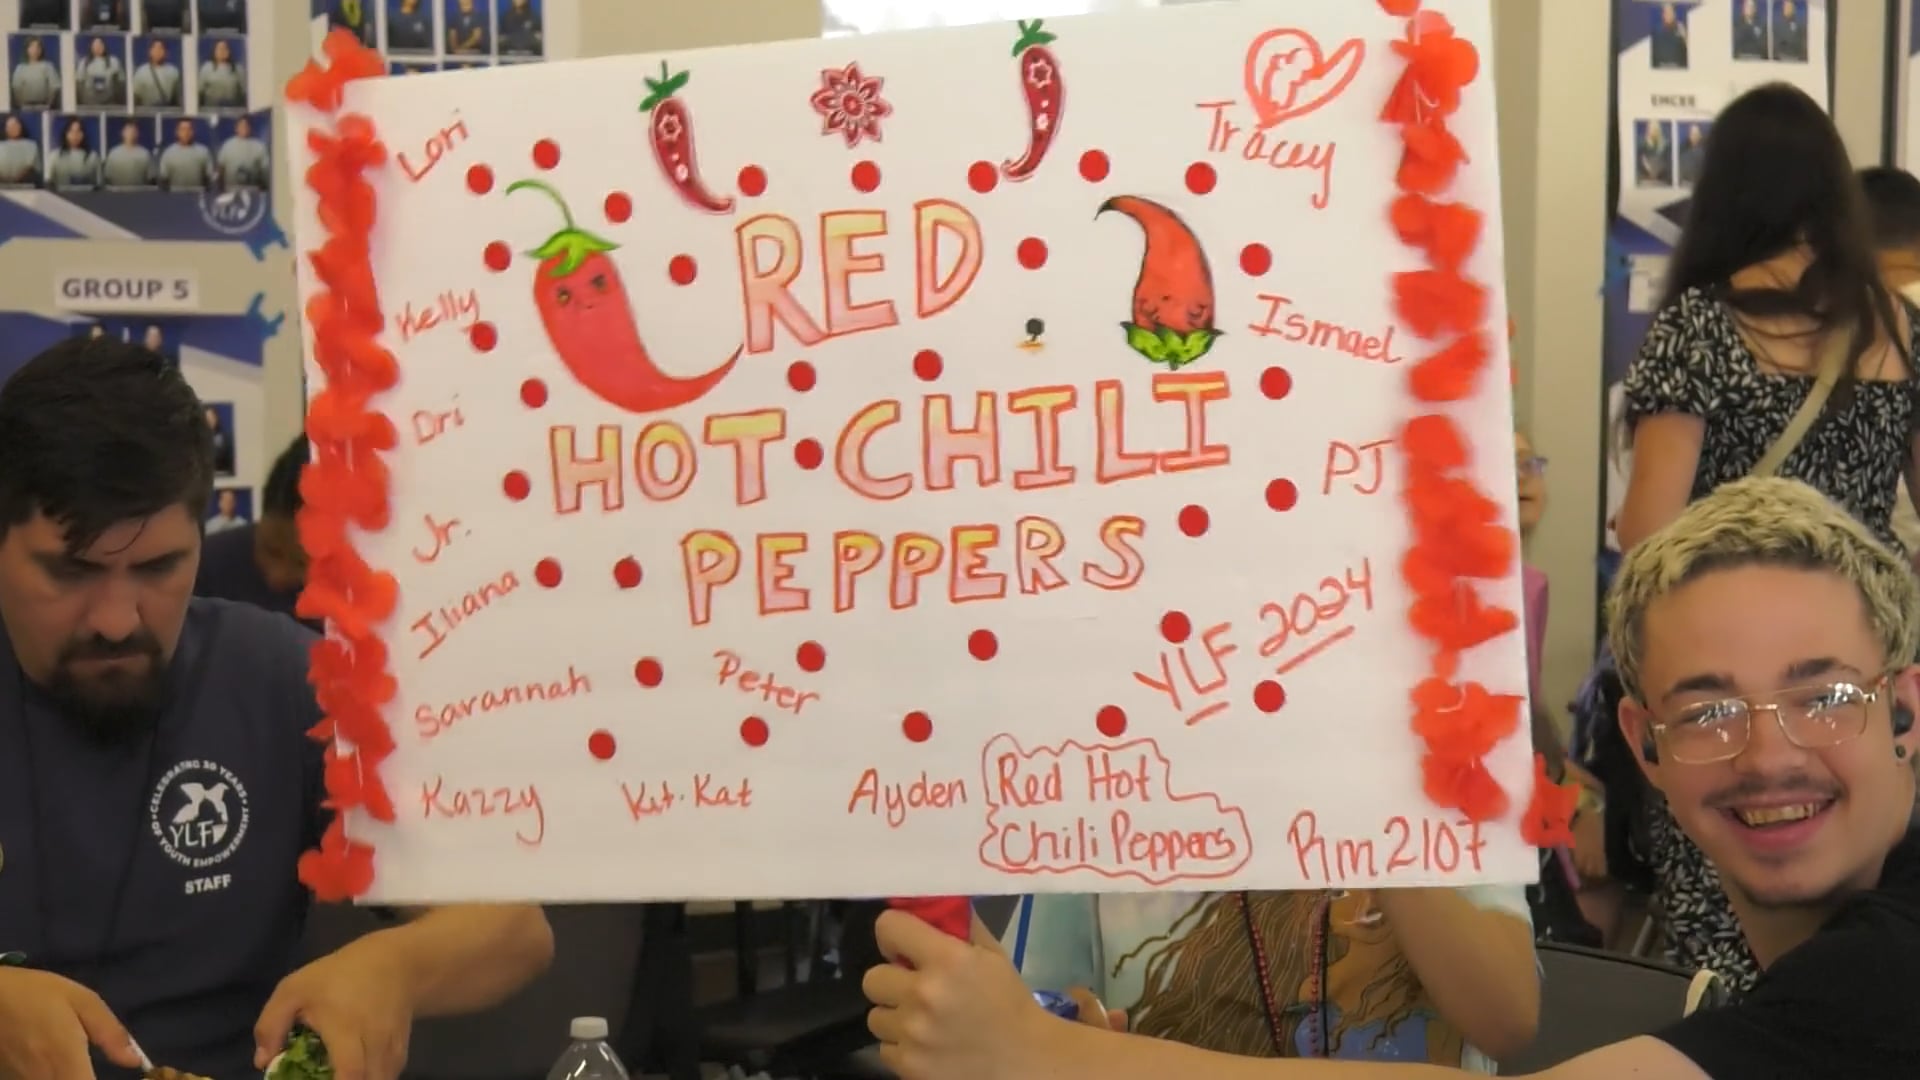 EMCEE
GROUP 5
YLF
Lori
Tracey
RED
Kelly
Ismael
HOT CHILI
Dri
PJ
PEPPERS
Jr.
Iliana
YLF 2024
Savannah
Peter
Kazzy
Kit-Kat
Ayden
Red Hot
Chili Peppers
Rm 2107
CELEBRATING 30 YEARS
YLF
OF YOUTH EMPOWERMENT
STAFF